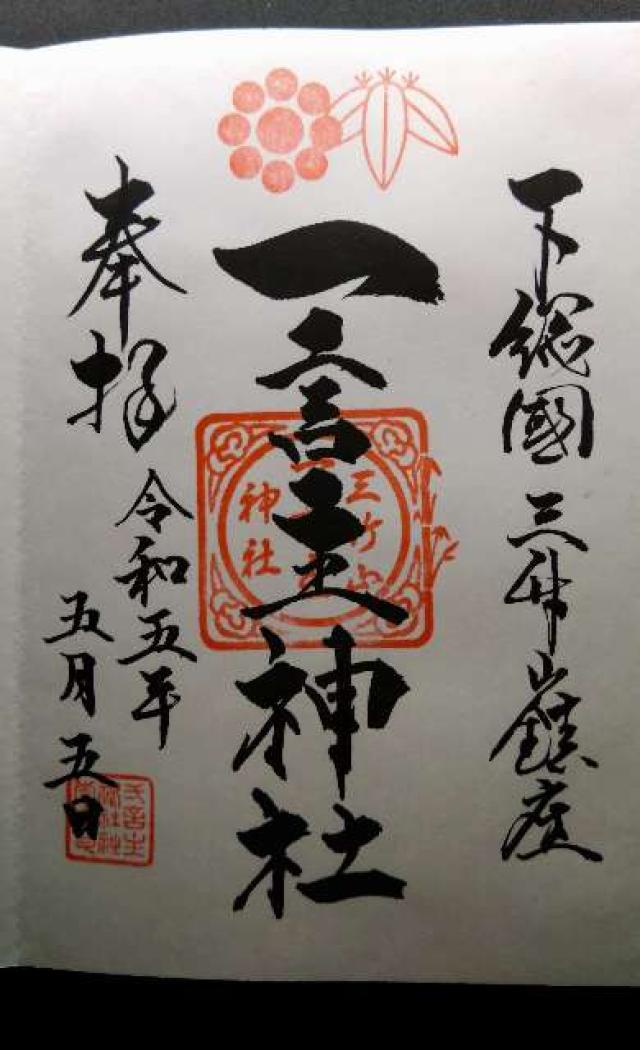 下総國三竹山鎮座
一言主神社
三竹山
神社
奉拝
令和五年
五月五日